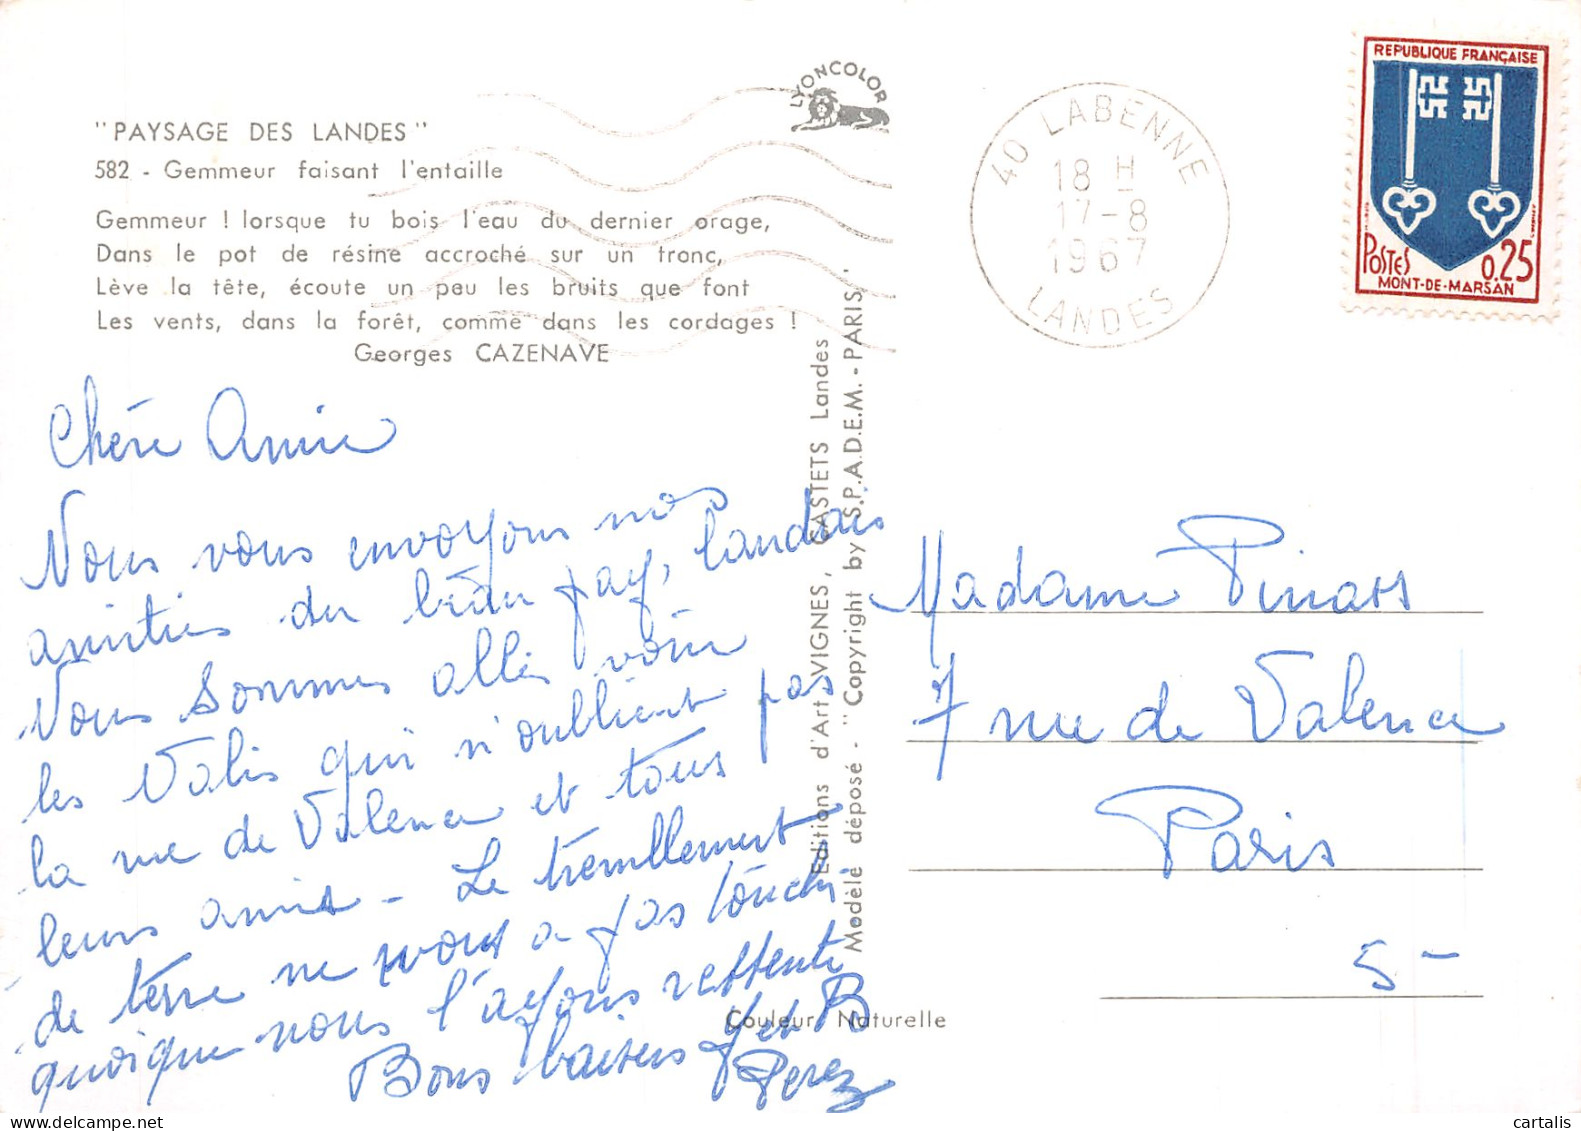 LYONCOLOR
"PAYSAGE DES LANDES"
582 - Gemmeur faisant l'entaille
Gemmeur ! lorsque tu bois l'eau du dernier orage,
Dans le pot de résine accroché sur un tronc,
Lève la tête, écoute un peu les bruits que font
Les vents, dans la forêt, comme dans les cordages !
Georges CAZENAVE
40 LABENNE
18 H
17-8
1967
LANDES
REPUBLIQUE FRANÇAISE
POSTES
0,25
MONT-DE-MARSAN
Chère Amie
Nous vous envoyons nos
amitiés du beau pays landais
Nous sommes allés voir
les Valis qui n'oublient pas
la rue de Valence et tous
leurs amis - Le tremblement
de terre ne nous a pas touché
quoique nous l'ayons ressenti
Bons baisers J et B
Perez
Editions d'Art VIGNES, CASTETS Landes
Modèle déposé - "Copyright by S.P.A.D.E.M. - PARIS".
Couleur Naturelle
Madame Pinars
7 rue de Valence
Paris
5-
cartalis